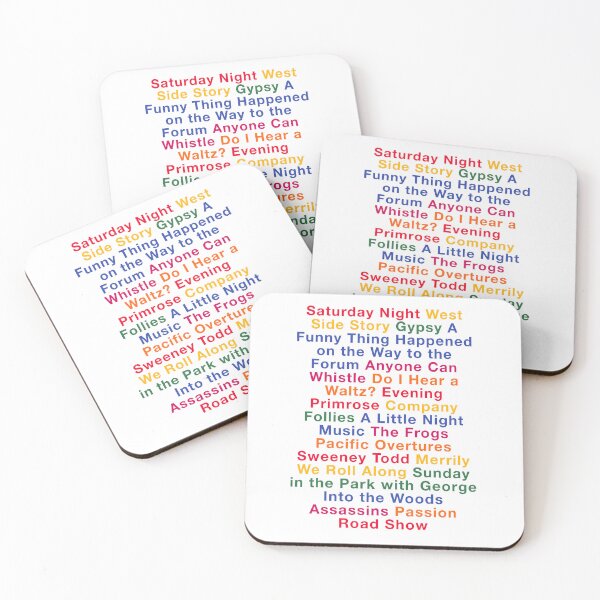 Saturday Night West
Side Story Gypsy A
Funny Thing Happened
on the Way to the
Forum Anyone Can
Whistle Do I Hear a
Waltz? Evening
Primrose Company
Follies A Little Night
Frogs
Sunday
Saturday Night West
Side Story Gypsy A
Funny Thing Happened
on the Way to the
Forum Anyone Can
Whistle Do I Hear a
Waltz? Evening
Primrose Company
Follies A Little Night
Music The Frogs
Pacific Overtures
Sweeney Todd Merrily
We Roll Along Sunday
Saturday Night West
Side Story Gypsy A
Funny Thing Happened
on the Way to the
Forum Anyone Can
Whistle Do I Hear a
Waltz? Evening
Primrose Company
Follies A Little Night
Music The Frogs
Pacific Overtures
Sweeney Todd
We Roll Along
in the Park with
Into the
Assassins
Road Show
Saturday Night West
Side Story Gypsy A
Funny Thing Happened
on the Way to the
Forum Anyone Can
Whistle Do I Hear a
Waltz? Evening
Primrose Company
Follies A Little Night
Music The Frogs
Pacific Overtures
Sweeney Todd Merrily
We Roll Along Sunday
in the Park with George
Into the Woods
Assassins Passion
Road Show